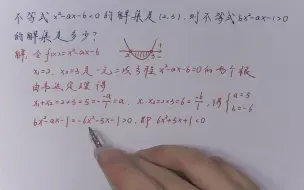 不等式x²-ax-b<0的解集是(2,3),则不等式bx²-ax-1>0
的解集是多少?
解:令f(x)=x²-ax-b
x₁=2, x₂=3是一元二次方程x²-ax-b=0的两个根
由韦达定理得
x₁+x₂=2+3=5=-\frac{-a}{1}=a, x₁·x₂=2×3=6=\frac{-b}{1}, 得{a=5
b=-6
bx²-ax-1=-6x²-5x-1>0, 即6x²+5x+1<0